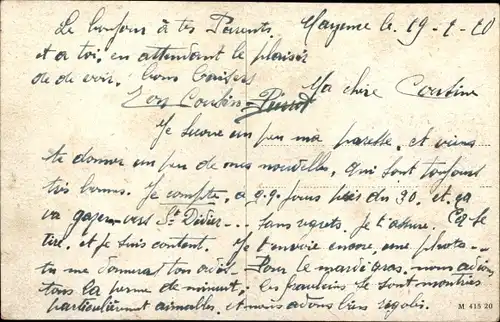 Le bonjour à tes Parents
et a toi, en attendant le plaisir
de te voir. Bons baisers
Ton Cousin Pierrot
Mayenne le 19-2-20
Ma chère Cousine
Je secoue un peu ma paresse, et viens
te donner un peu de mes nouvelles, qui sont toujours
très bonnes. Je compte, a q.q. jours près du 30. et ça
va gazer vers St Didier... sans regrets, je t'assure. Ça se
tire, et je suis content. Je t'envoie encore, une photo--
tu me donneras ton avis. Pour le mardi gras, nous avions
tous la perme de minuit; les frauleins se sont montrées
particulièrement aimables, et nous avons bien rigolé.
M 415 20